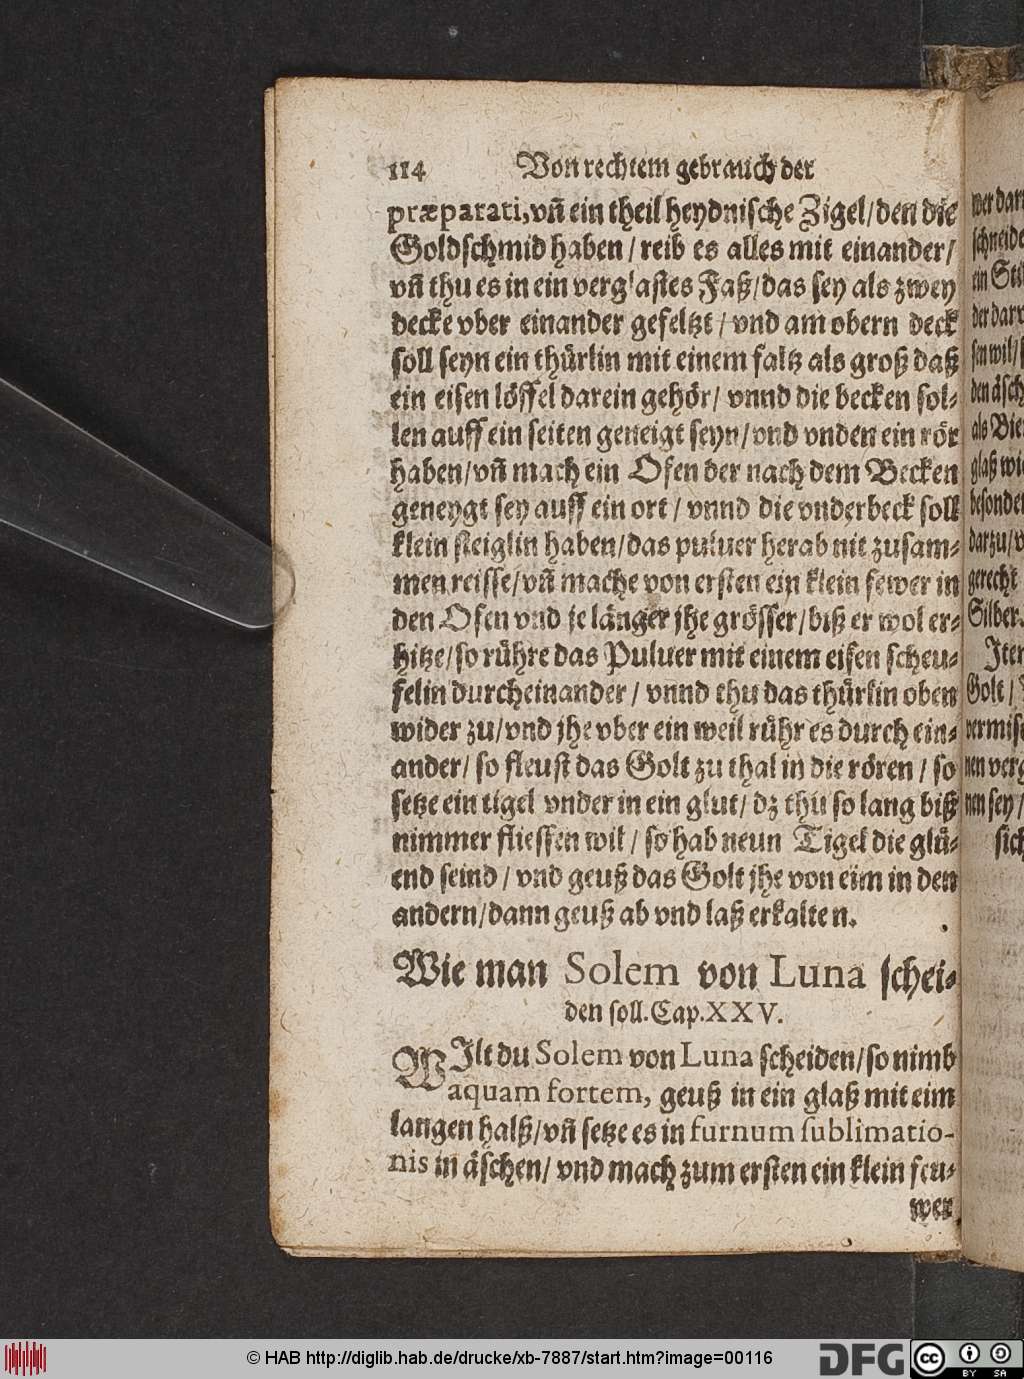 114 Von rechtem gebrauch der
præparati, vñ ein theil heydnische Zigel/den die
Goldschmid haben / reib es alles mit einander/
vñ thu es in ein verglastes Faß/das sey als zwey
decke vber einander gefeltzt / vnd am obern deck
soll seyn ein thürlin mit einem faltz als groß daß
ein eisen löffel darein gehör/ vnnd die becken sol-
len auff ein seiten geneigt seyn/vnd vnden ein rör
haben/vñ mach ein Ofen der nach dem Becken
geneygt sey auff ein ort / vnnd die vnderbeck soll
klein steiglin haben/das puluer herab nit zusam-
men reisse/vñ mache von ersten ein klein fewer in
den Ofen vnd je länger jhe grösser/biß er wol er-
hitze/so rühre das Puluer mit einem eisen scheu-
felin durcheinander / vnnd thu das thürlin oben
wider zu/vnd jhe vber ein weil rühr es durch ein-
ander/ so fleust das Golt zu thal in die rören / so
setze ein tigel vnder in ein glut/ dz thu so lang biß
nimmer fliessen wil / so hab neun Tigel die glü-
end seind / vnd geuß das Golt jhe von eim in den
andern/dann geuß ab vnd laß erkalten.
Wie man Solem von Luna schei-
den soll. Cap. XXV.
WIlt du Solem von Luna scheiden/so nimb
aquam fortem, geuß in ein glaß mit eim
langen halß/vñ setze es in furnum sublimatio-
nis in äschen/ vnd mach zum ersten ein klein feu-
wer
wer dar
schneide
ein
der dar
sen wil/
den äsch
als Bie
glaß wi
besonder
darzu/
gerecht
Silber.
Item
Golt /
vermisc
nen verg
nen sey /
sich
© HAB http://diglib.hab.de/drucke/xb-7887/start.htm?image=00116
DFG
cc BY SA